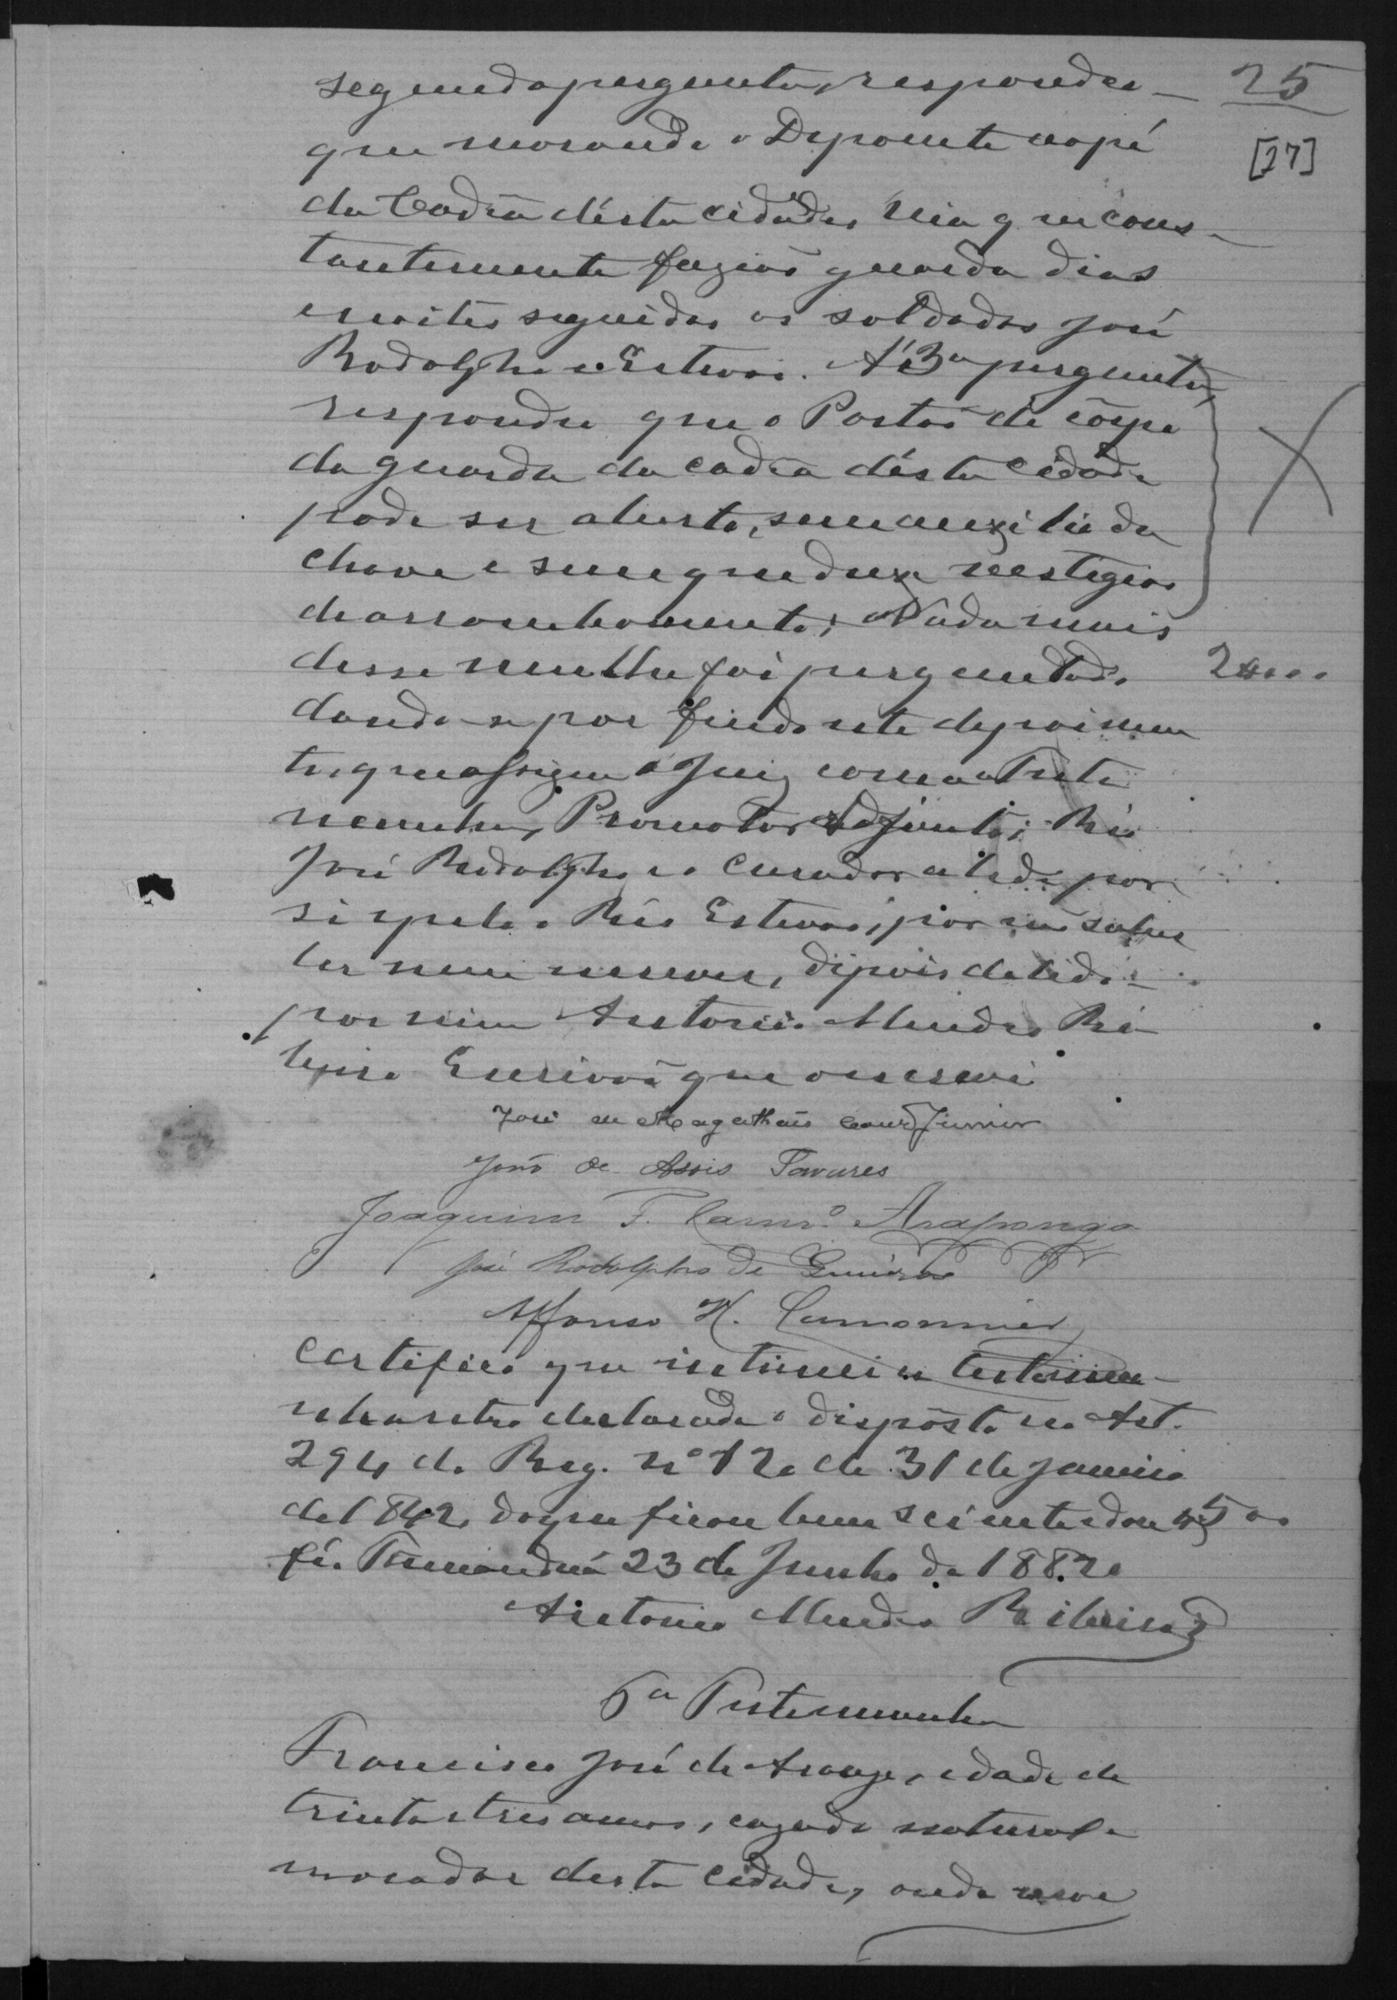 25
[27]
segunda pergunta, respondeo
que morando o Depoente ao pé
da Cadêa désta cidade, via que cons-
tantemente fazião guarda dias
e noites seguidas os soldados José
Rodolpho e Estevão. Á 3a pergunta,
respondeu que o Portão do côrpo
da guarda da cadêa désta cidade
pode ser aberto, sem auxilio da
chave e sem que deixe vestigios
de arrombamento; Nada mais
disse nem lhe foi perguntado,
dando-se por findo este depoimen
to, que assigna o Juiz com a teste
munha, Promotor Adjunto, Réo
José Rodolpho e o Curador a lido por
si e pelo o Réo Estevão, por não saber
ler nem escrever, dipois de lido
por mim Antonio Mendes Ri
beiro Escrivão que o escrevi
José de Magalhães Couto Junior
João de Assis Tavares
Joaquim F. Carnro. Araponga
José Rodolpho de
Affonso H.
Certifico que intimei a testemu-
nha retro declarada o disposto no Art.
294 do Reg. nº 120 de 31 de Janeiro
de 1842, do que ficou bem sciente dou
fé. Tamanduá 23 de Junho de 1882
Antonio Mendes Ribeiro
6a Testemunha
Francisco José de Araujo, idade de
trinta e tres annos, cazado natural e
morador desta cidade, onde vive